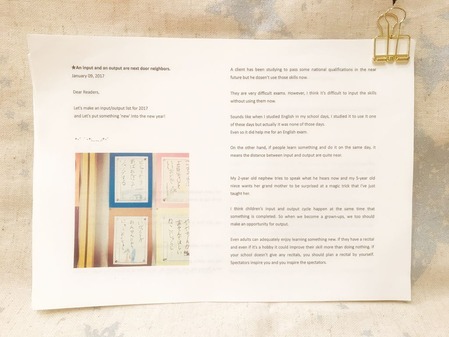 ★An input and an output are next door neighbors.
January 09, 2017
Dear Readers,
Let's make an input/output list for 2017
and Let's put something 'new' into the new year!
A client has been studying to pass some national qualifications in the near
future but he doesn't use those skills now.
They are very difficult exams. However, I think it's difficult to input the skills
without using them now.
Sounds like when I studied English in my school days, I studied it to use it one
of these days but actually it was none of those days.
Even so it did help me for an English exam.
On the other hand, if people learn something and do it on the same day, it
means the distance between input and output are quite near.
My 2-year old nephew tries to speak what he hears now and my 5-year old
niece wants her grand mother to be surprised at a magic trick that I've just
taught her.
I think children's input and output cycle happen at the same time that
something is completed. So when we become a grown-ups, we too should
make an opportunity for output.
Even adults can adequately enjoy learning something new. If they have a recital
and even if it's a hobby it could improve their skill more than doing nothing. If
your school doesn't give any recitals, you should plan a recital by yourself.
Spectators inspire you and you inspire the spectators.